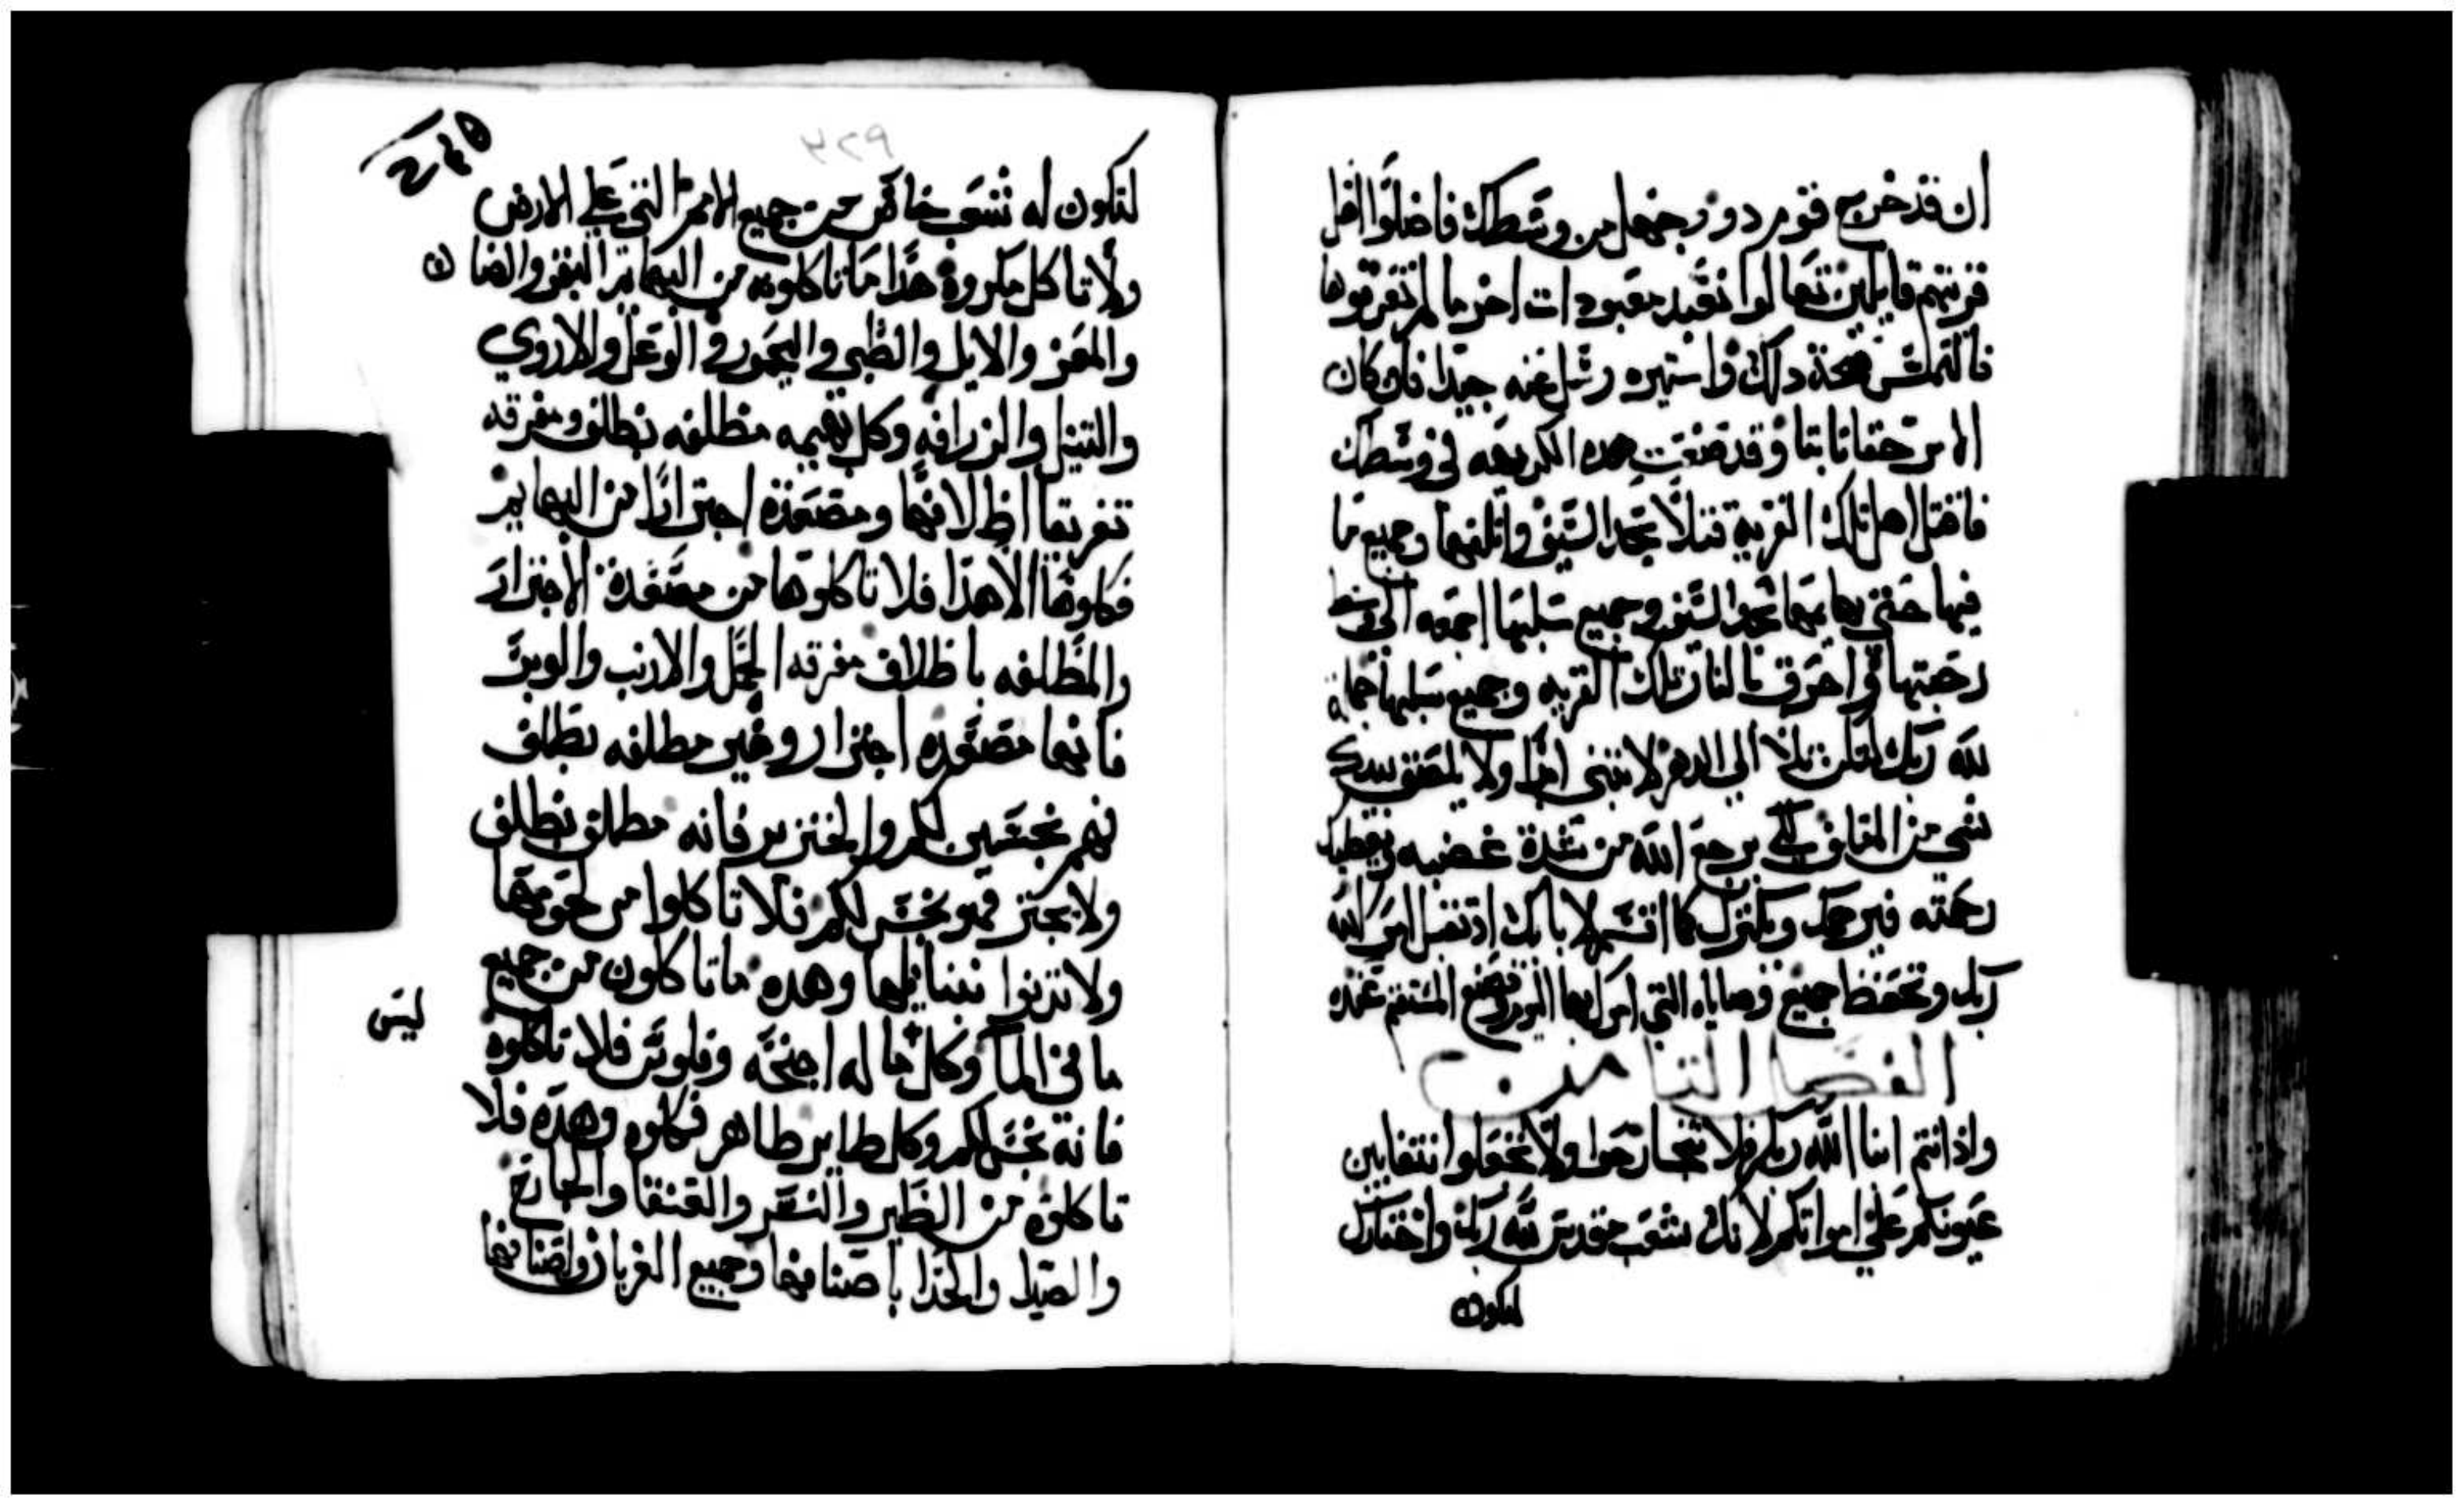 ان قد خرج قوم دوو جهل من وسطك فاضلوا اهل
قريتهم قايلين تعالوا نعبد معبودات اخر ما لم تعرفوها
فالتمس صحة دلك واستهره وسل عنه جيدا فان كان
الامر حقا ثابتا وقد صنعت هده الكريهه في وسطك
فاقتل اهل تلك القرية قتلا بحد السيف واتلفها وجميع ما
فيها حتى بهايمها بحد السيف وجميع سلبها اجمعه الى وسط
رحبتها واحرق بالنار تلك القريه وجميع سلبها جملة
لله ربك لتكن تلا الى الدهر لا تبنى ابدا ولا يلصق بيدك
شي من التلف لكي يرجع الله من شدة غضبه ويعطيك
رحمته فيرحمك ويكثرك كما اقسم لابايك اد تقبل امر الله
ربك وتحفظ جميع وصاياه التي امرك بها اليوم وتصنع المستقيم عنده
الفصل الثامن
واذ انتم ابنا الله ربكم فلا تتخارحوا ولا تجعلوا نتفا بين
عيونكم على امواتكم لانك شعب مقدس لله ربك واختارك
لتكون
٣٢٩
لتكون له شعب خاص من جميع الامم التي على الارض
ولا تاكل مكروة هدا ما تاكلونه من البهايم البقر والضان
والمعز والايل والظبي واليحمور والوعل والاروي
والتيتل والزرافه وكل بهيمه مظلفه بظلف ومفرقه
تفريقا اظلافها ومصعدة اجترارا من البهايم
فكلوها الا هدا فلا تاكلوها من مصعدة الاجترار
والمظلفه باظلاف مفرقه الجمل والارنب والوبر
فانها مصعده اجترار وغير مظلفه بظلف
فهم نجسين لكم والخنزير فانه مظلف بظلف
ولا يجتر فهو نجس لكم فلا تاكلوا من لحومها
ولا تدنوا بنبايلها وهده ما تاكلون من جميع
ما في الما وكل ما له اجنحه وفلوس فلا تاكلوه
ليس
فانه نجس لكم وكل طاير طاهر فكلوه وهده فلا
تاكلوه من الطير والنسر والعنقا والجارح
والصيدا والحدا باصنافها وجميع الغربان واصنافها